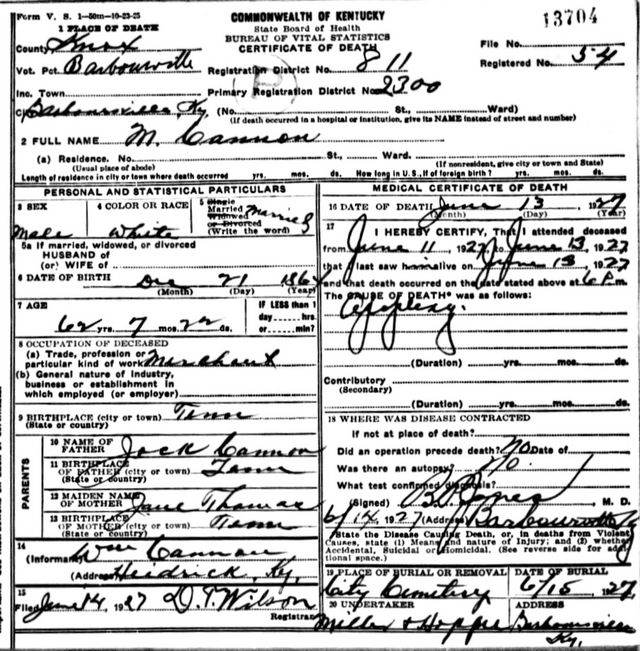 Form V. S. 1-50m-10-23-25
1 PLACE OF DEATH
COMMONWEALTH OF KENTUCKY
State Board of Health
BUREAU OF VITAL STATISTICS
CERTIFICATE OF DEATH
13704
County Knox
File No.
Vot. Pct. Barbourville
Registration District No. 811
Registered No. 54
Inc. Town
Primary Registration District No. 2300
Barboursville, Ky. (No. St., Ward)
(If death occurred in a hospital or institution, give its NAME instead of street and number)
2 FULL NAME M. Cannon
(a) Residence. No. St., Ward.
(Usual place of abode) (If nonresident, give city or town and State)
Length of residence in city or town where death occurred yrs. mos. ds. How long in U.S., if of foreign birth? yrs. mos. ds.
PERSONAL AND STATISTICAL PARTICULARS
3 SEX
Male
4 COLOR OR RACE
White
5 Single
Married
Widowed
or Divorced
(Write the word)
Married
5a If married, widowed, or divorced
HUSBAND of
(or) WIFE of
6 DATE OF BIRTH Dec 21 1864
(Month) (Day) (Year)
7 AGE
62 yrs. 7 mos. 22 ds.
IF LESS than 1
day hrs.
or min?
8 OCCUPATION OF DECEASED
(a) Trade, profession or
particular kind of work Merchant
(b) General nature of industry,
business or establishment in
which employed (or employer)
9 BIRTHPLACE (city or town) Tenn
(State or country)
PARENTS
10 NAME OF
FATHER Jack Cannon
11 BIRTHPLACE
OF FATHER (city or town) Tenn
(State or country)
12 MAIDEN NAME
OF MOTHER Jane Thomas
13 BIRTHPLACE
OF MOTHER (city or town) Tenn
(State or country)
14
(Informant) Wm Cannon
(Address) Heidrick, Ky.
15
Filed June 14 1927 D. T. Wilson
Registrar
MEDICAL CERTIFICATE OF DEATH
16 DATE OF DEATH June 13, 1927
(Month) (Day) (Year)
17
I HEREBY CERTIFY, That I attended deceased
from June 11, 1927, to June 13, 1927
that I last saw him alive on June 13, 1927
and that death occurred on the date stated above at 6 P.m.
The CAUSE OF DEATH* was as follows:
Apoplexy.
(Duration) yrs. mos. ds.
Contributory
(Secondary)
(Duration) yrs. mos. ds.
18 WHERE WAS DISEASE CONTRACTED
If not at place of death?
Did an operation precede death? No Date of
Was there an autopsy? No.
What test confirmed diagnosis?
(Signed) B. Jones M. D.
6/14, 1927 (Address) Barbourville Ky
*State the Disease Causing Death, or, in deaths from Violent
Causes, state (1) Means and nature of Injury; and (2) whether
Accidental, Suicidal or Homicidal. (See reverse side for addi-
tional space.)
19 PLACE OF BURIAL OR REMOVAL
City Cemetery
DATE OF BURIAL
6/15 1927
20 UNDERTAKER
Miller & Hopper
ADDRESS
Barboursville
Ky.